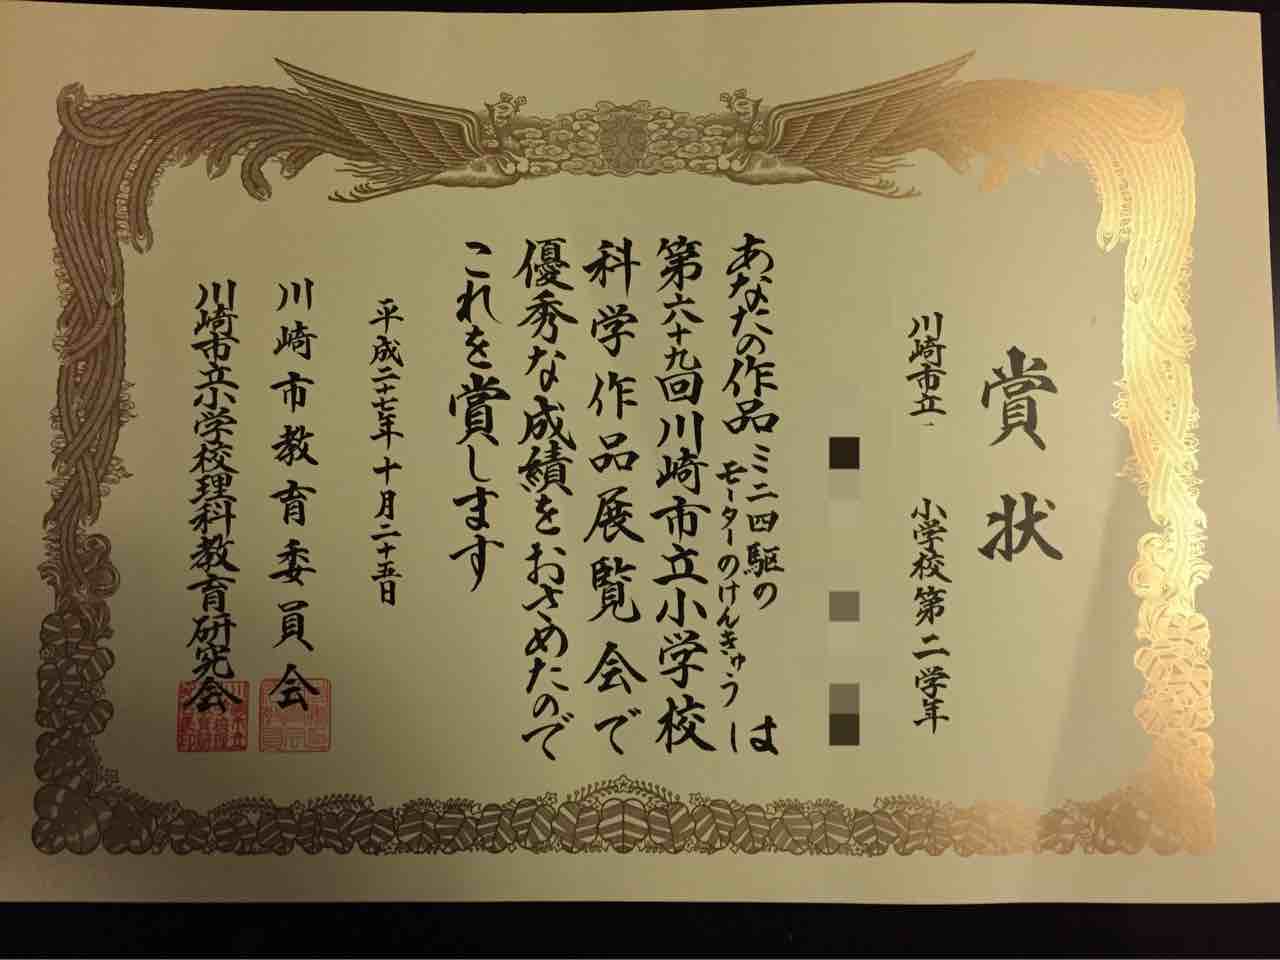 賞状
川崎市立 小学校第二学年
あなたの作品ミニ四駆の
モーターのけんきゅうは
第六十九回川崎市立小学校
科学作品展覧会で
優秀な成績をおさめたので
これを賞します
平成二十七年十月二十五日
川崎市教育委員会
川崎市立小学校理科教育研究会